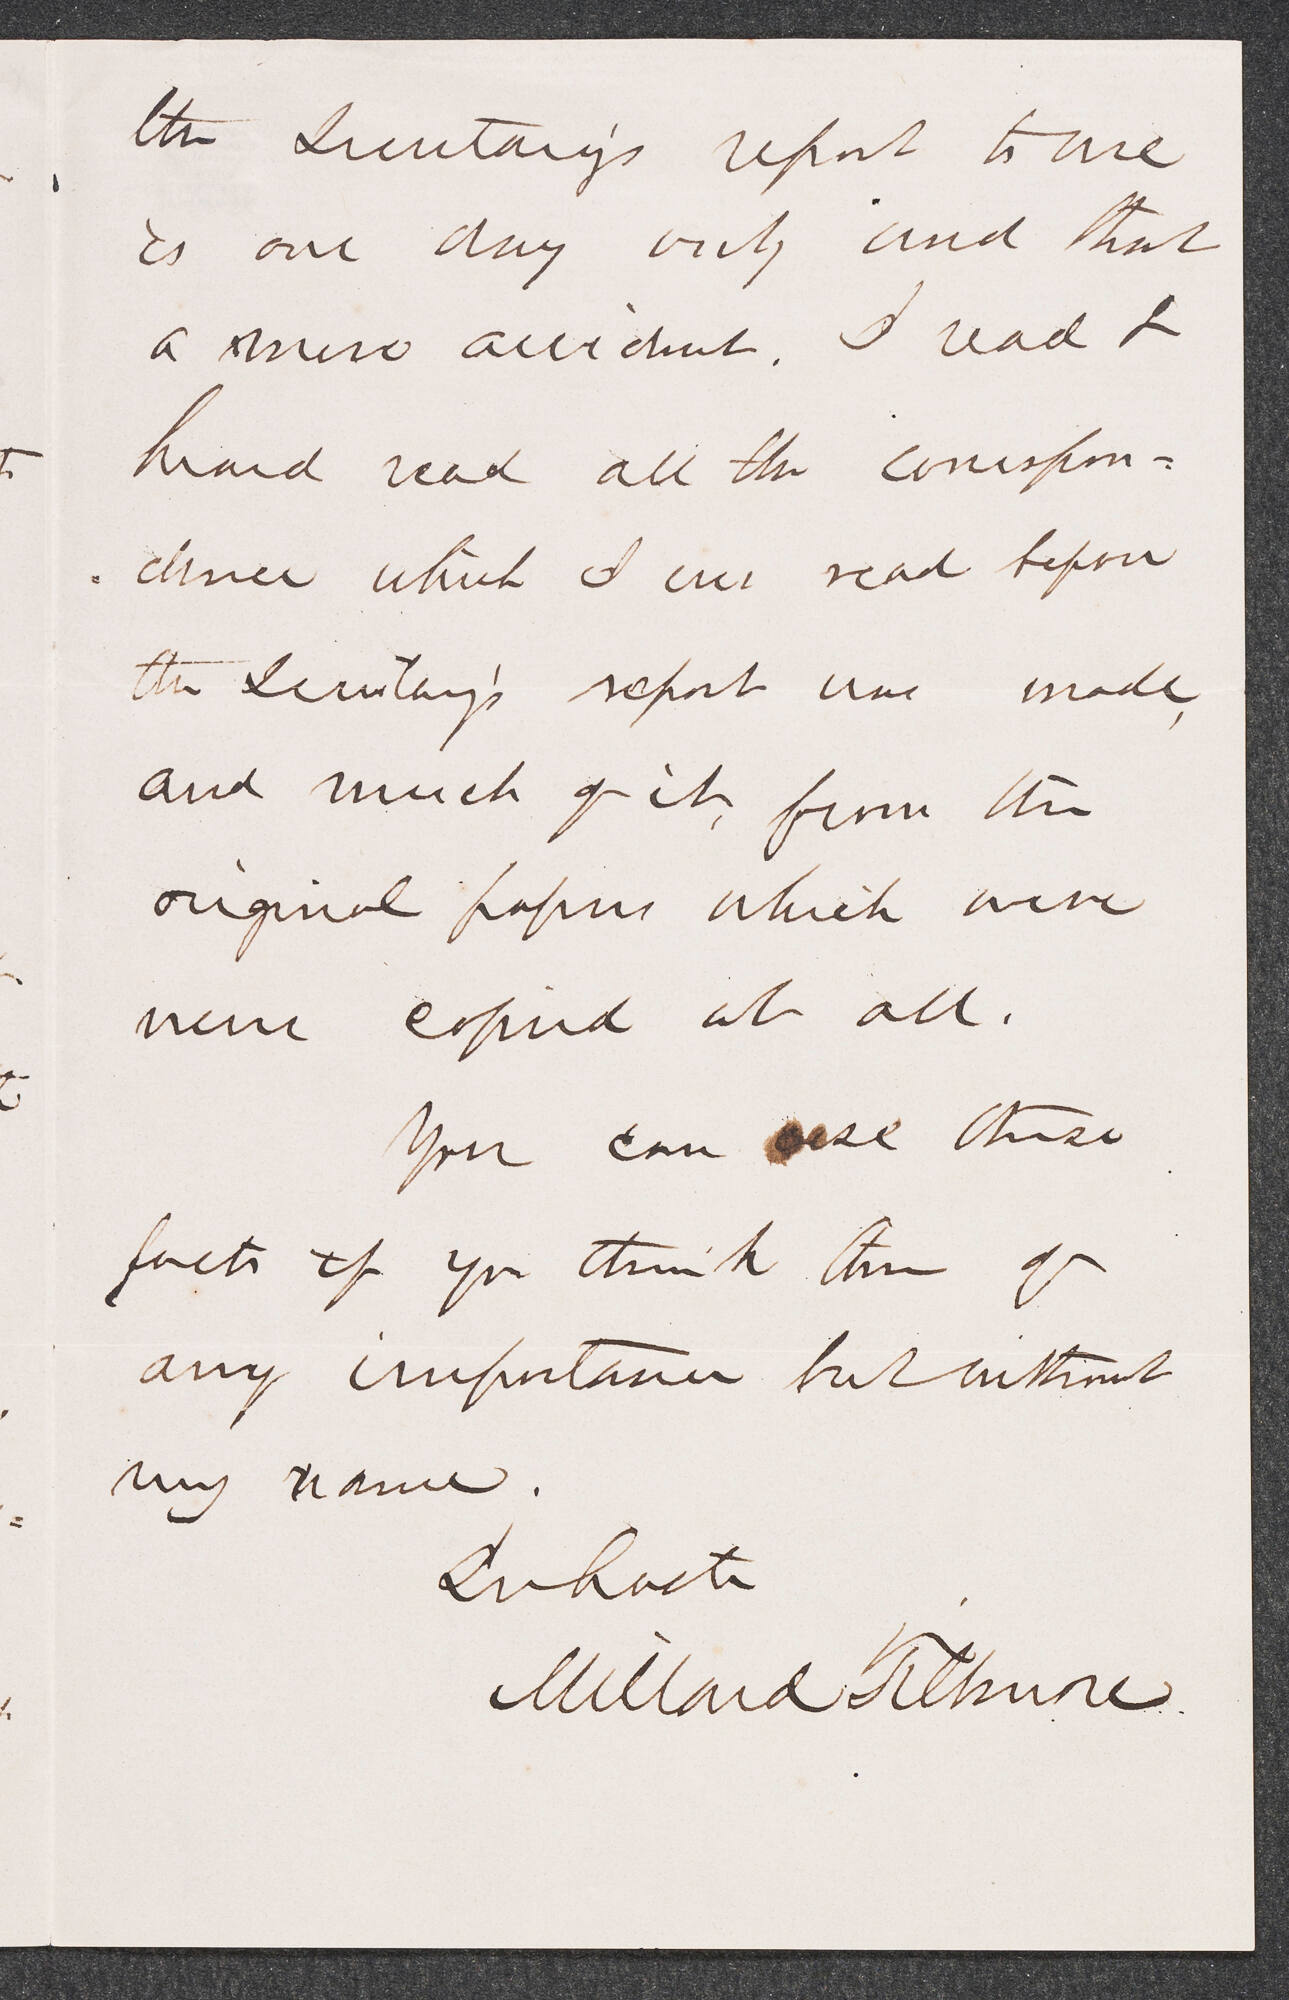 the Secretary's report to me
is one day only and that
a mere accident. I read &
heard read all the correspon=
dence which I ever read before
the Secretary's report was made,
and much of it, from the
original papers which were
never copied at all.
You can use these
facts if you think them of
any importance but without
my name.
In haste
Millard Fillmore